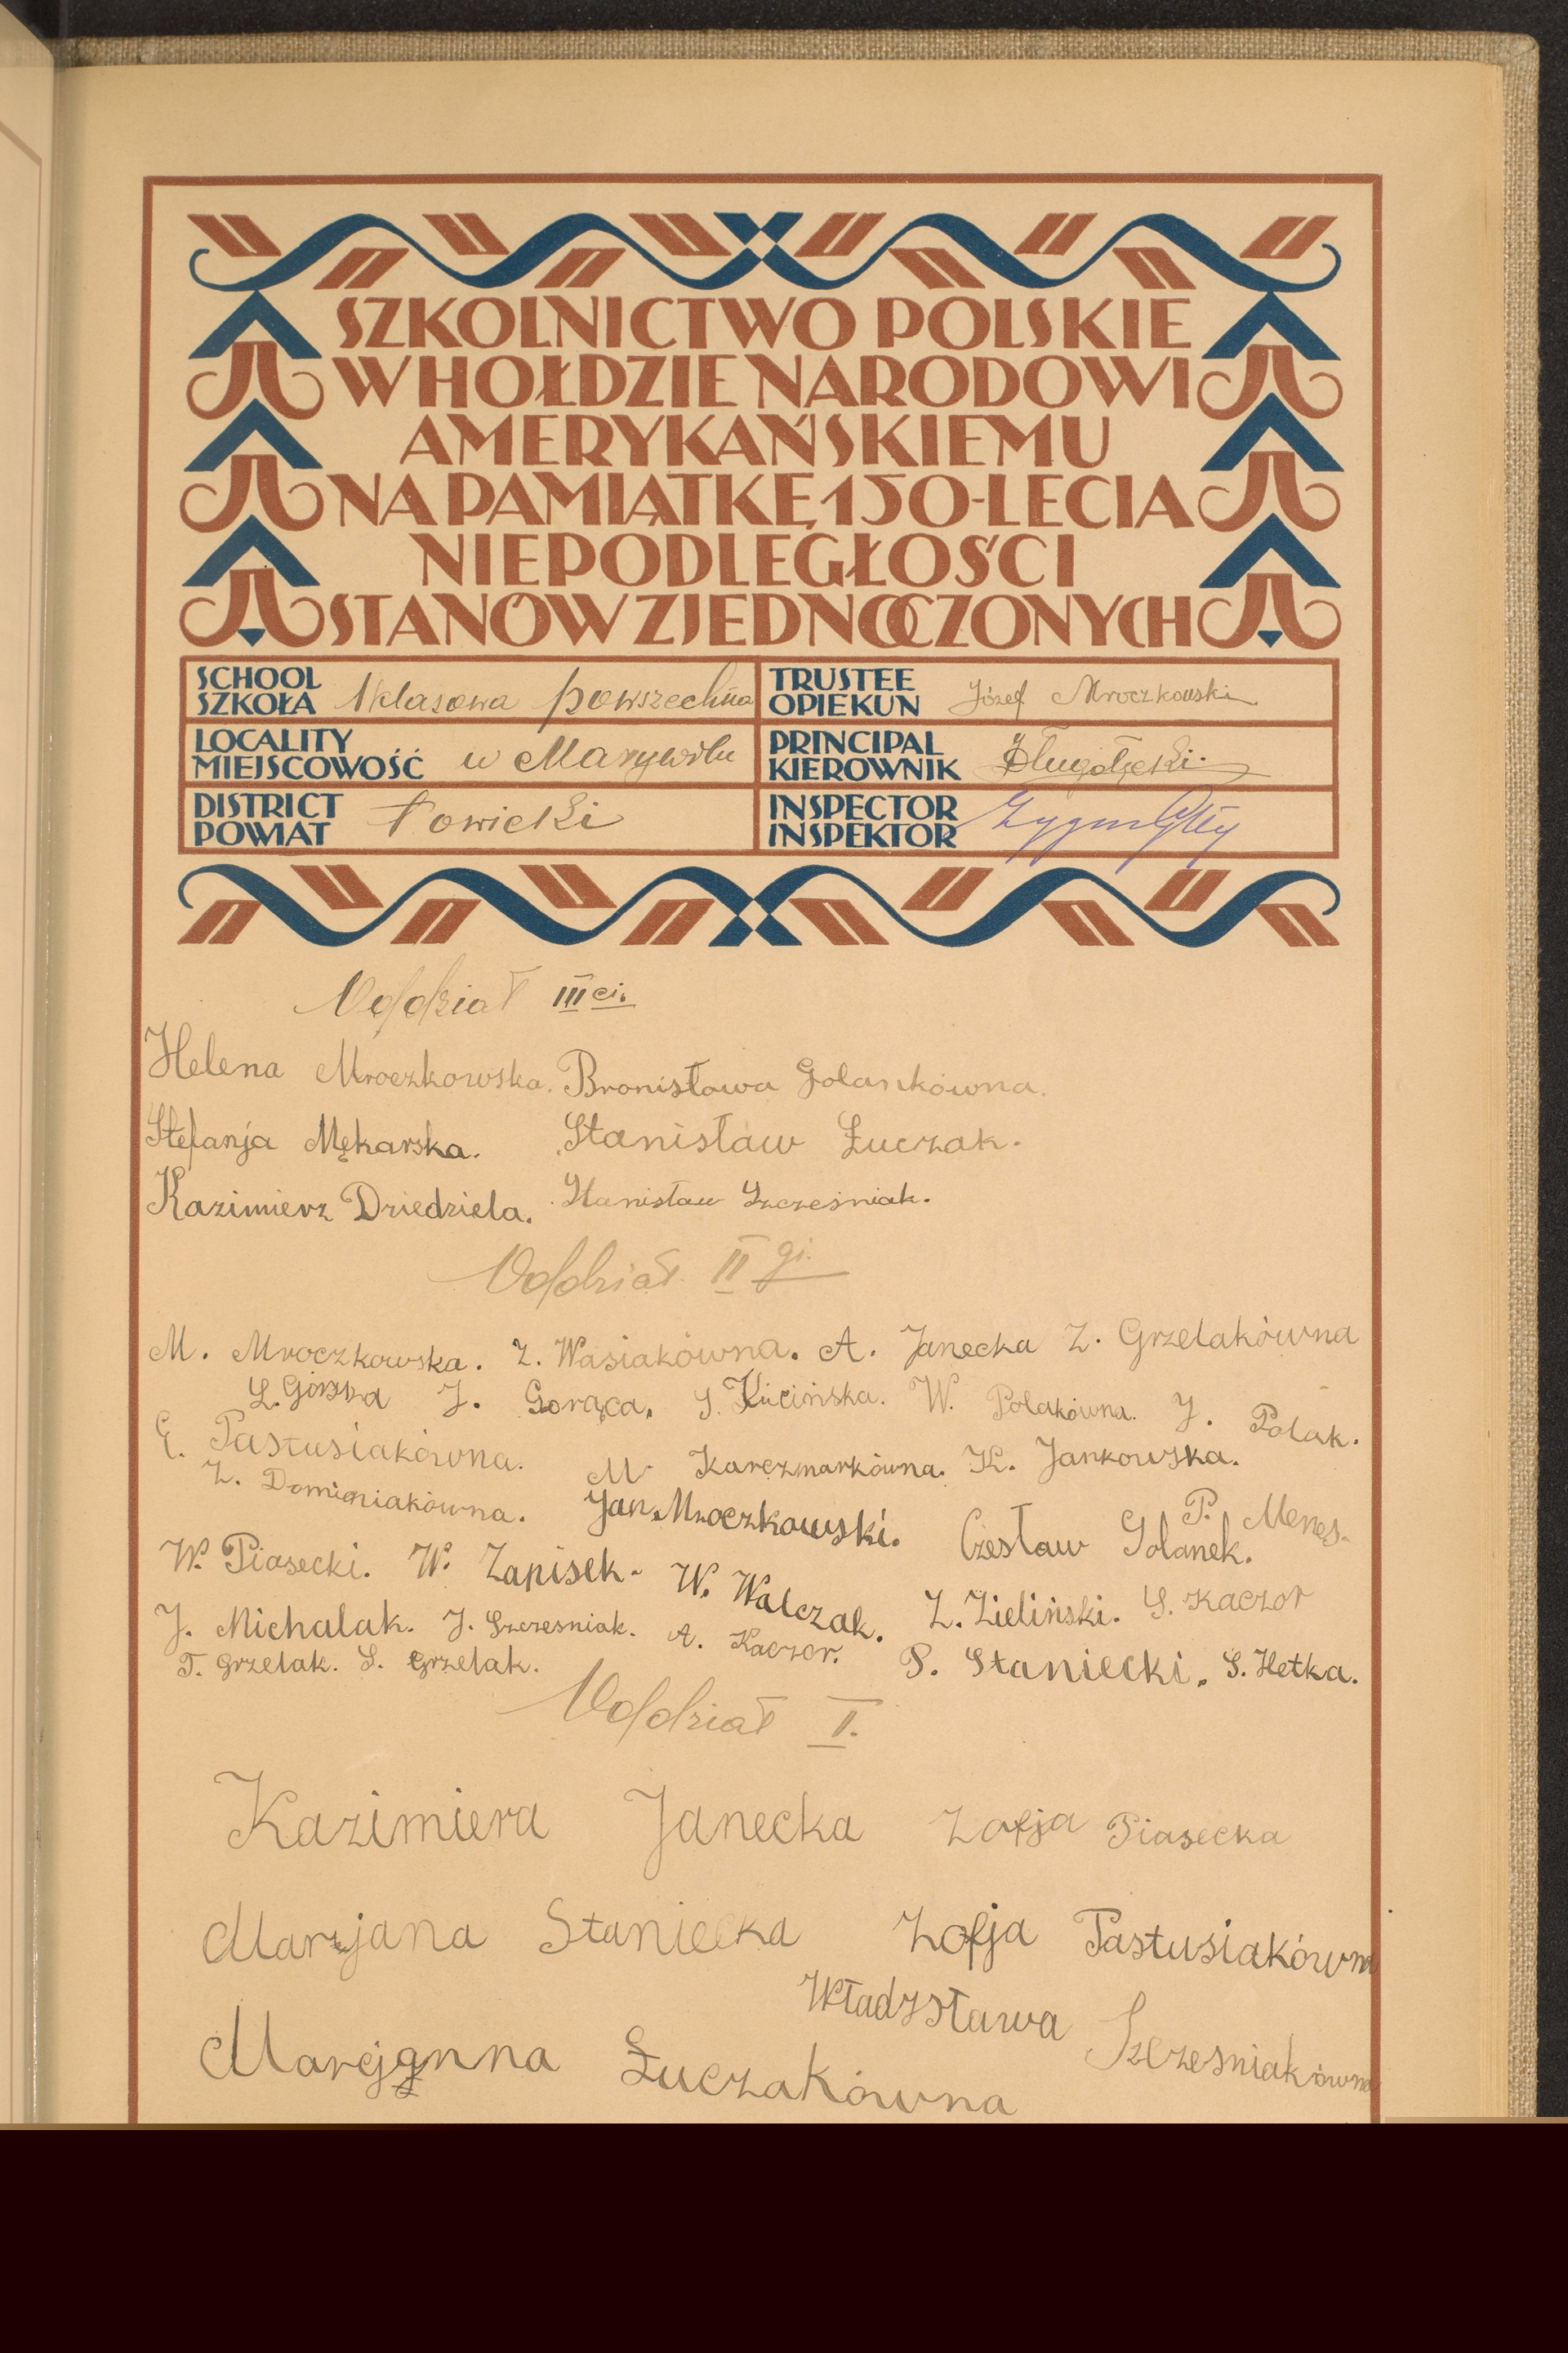 SZKOLNICTWO POLSKIE
W HOŁDZIE NARODOWI
AMERYKAŃSKIEMU
NA PAMIĄTKĘ 150-LECIA
NIEPODLEGŁOŚCI
STANÓW ZJEDNOCZONYCH
SCHOOL
SZKOŁA 1klasowa powszechna
TRUSTEE
OPIEKUN Józef Mroczkowski
LOCALITY
MIEJSCOWOŚĆ w Marywilu
PRINCIPAL
KIEROWNIK Długołęcki
DISTRICT
POWIAT Łowicki
INSPECTOR
INSPEKTOR
Oddział III ci.
Helena Mroczkowska. Bronisława Golankówna.
Stefanja Mękarska. Stanisław Łuczak.
Kazimierz Dziedziela. Stanisław Szcześniak.
Oddział II gi.
M. Mroczkowska. Z. Wasiakówna. A. Janecka Z. Grzelakówna
J. Gorąca. S. Kucińska. W. Polakówna. J. Polak.
E. Pastusiakówna. M. Karczmarkówna. K. Jankowska.
Z. Dominiakówna. Jan Mroczkowski. Czesław Golanek. P. Menes.
W. Piasecki. W. Zapisek. W. Walczak. Z. Zieliński. S. Kaczor
J. Michalak. J. Szczesniak. A. Kaczor. P. Staniecki. S. Hetka.
T. Grzelak. S. Grzelak.
Oddział I.
Kazimiera Janecka Zofja Piasecka
Marjana Staniecka Zofja Pastusiakówna
Władysława Szczesniakówna
Marcjanna Łuczakówna